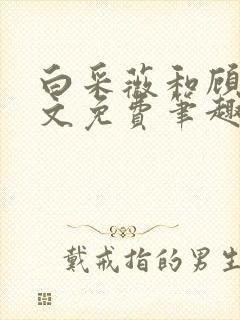 白采薇和顾
文免费笔趣
戴戒指的男生